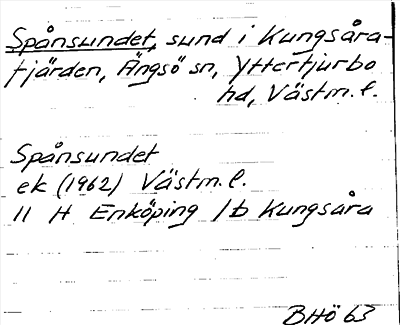 Spånsundet, sund i Kungsåra-
fjärden, Ängsö sn, Yttertjurbo
hd, Västm. l.
Spånsundet
ek (1962) Västm. l.
11 H Enköping / b Kungsåra
BHö 63